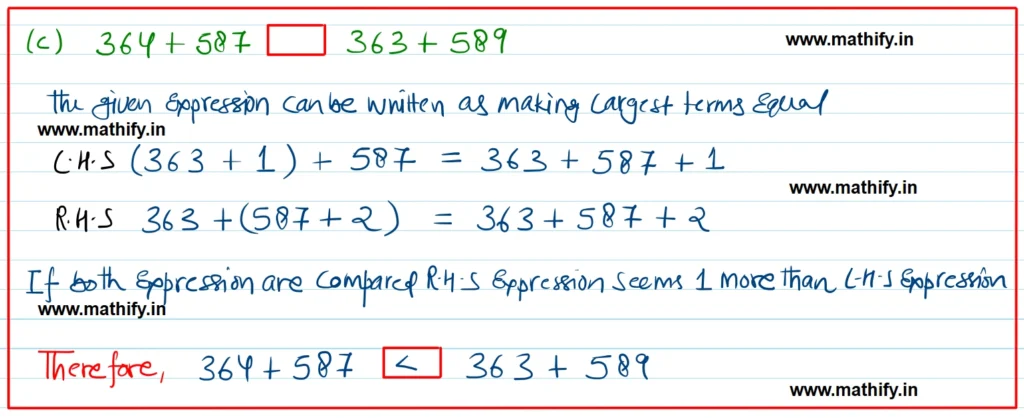 (c) 364 + 587 □ 363 + 589 www.mathify.in
The given Expression can be written as making largest terms Equal
www.mathify.in
L.H.S (363 + 1) + 587 = 363 + 587 + 1
www.mathify.in
R.H.S 363 + (587 + 2) = 363 + 587 + 2
If both Expression are compared R.H.S Expression seems 1 more than L.H.S Expression
www.mathify.in
Therefore, 364 + 587 < 363 + 589
www.mathify.in